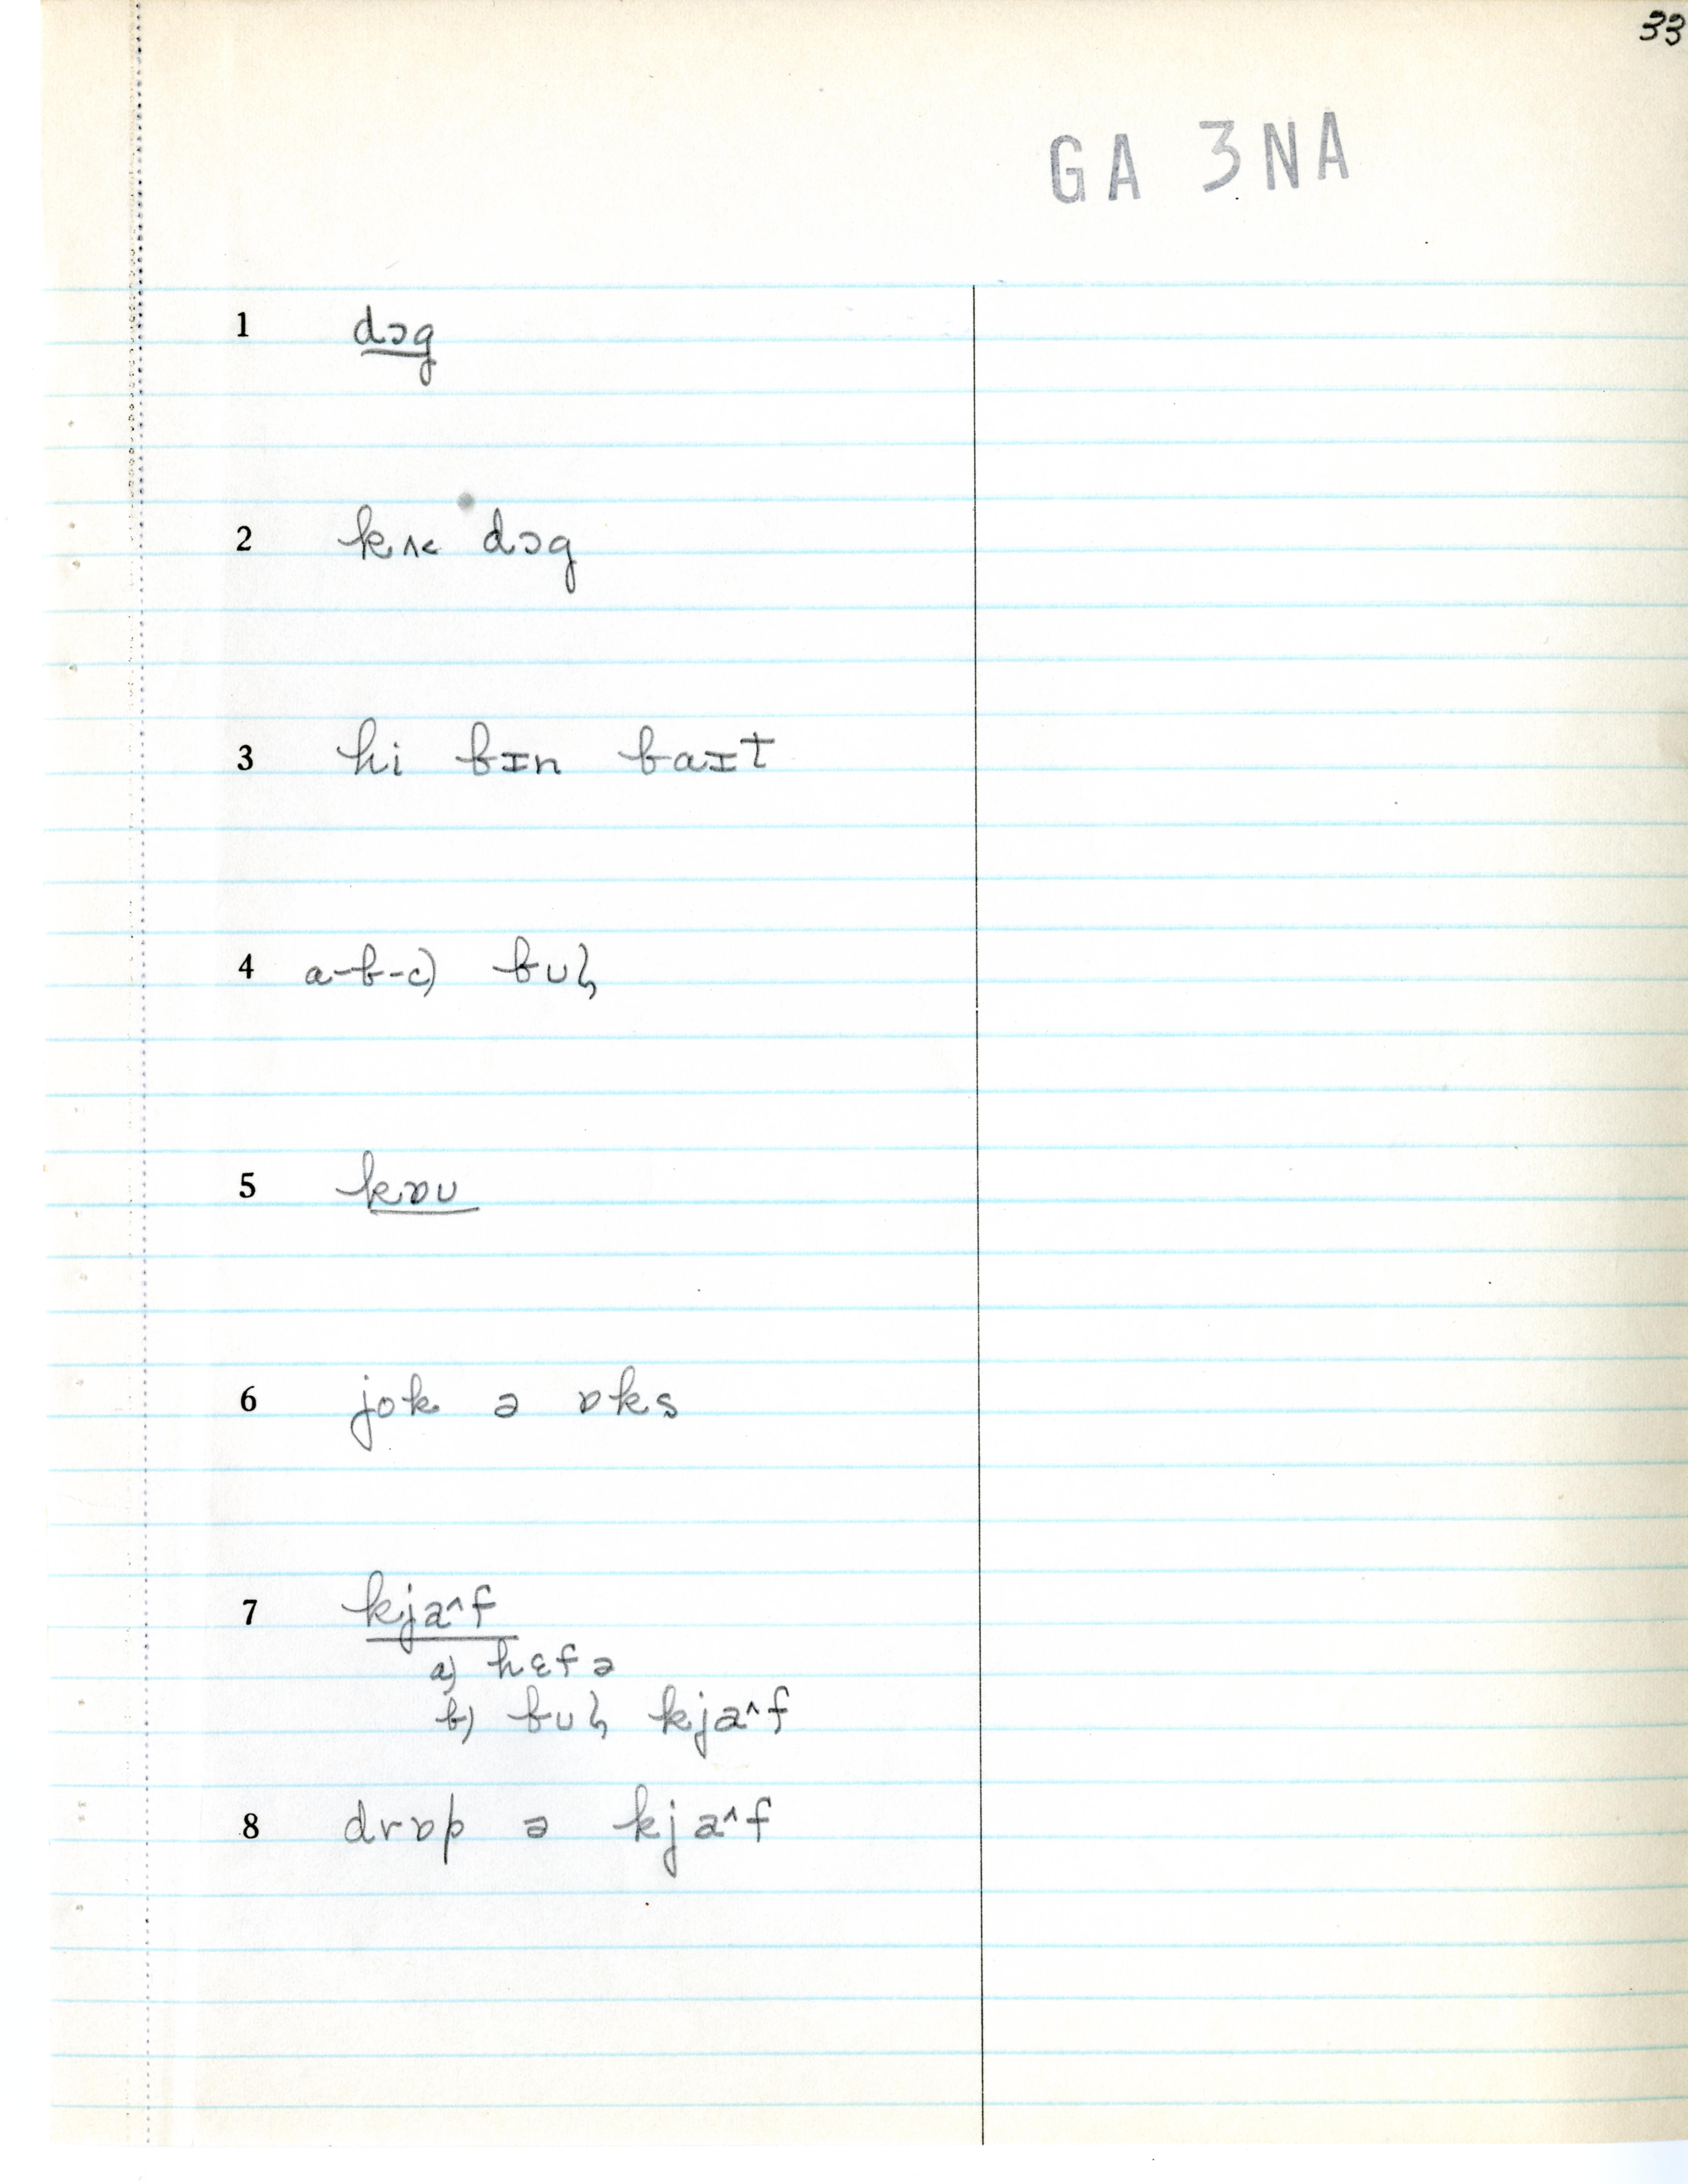 33
GA 3NA
1 dɔg
2 kʌ< dɔg
3 hi bɪn baɪt
4 a-b-c) bʊɫ
5 kɒʊ
6 jok ə ɒks
7 kja^f
a) hɛfə
b) bʊɫ kja^f
8 drɒp ə kja^f